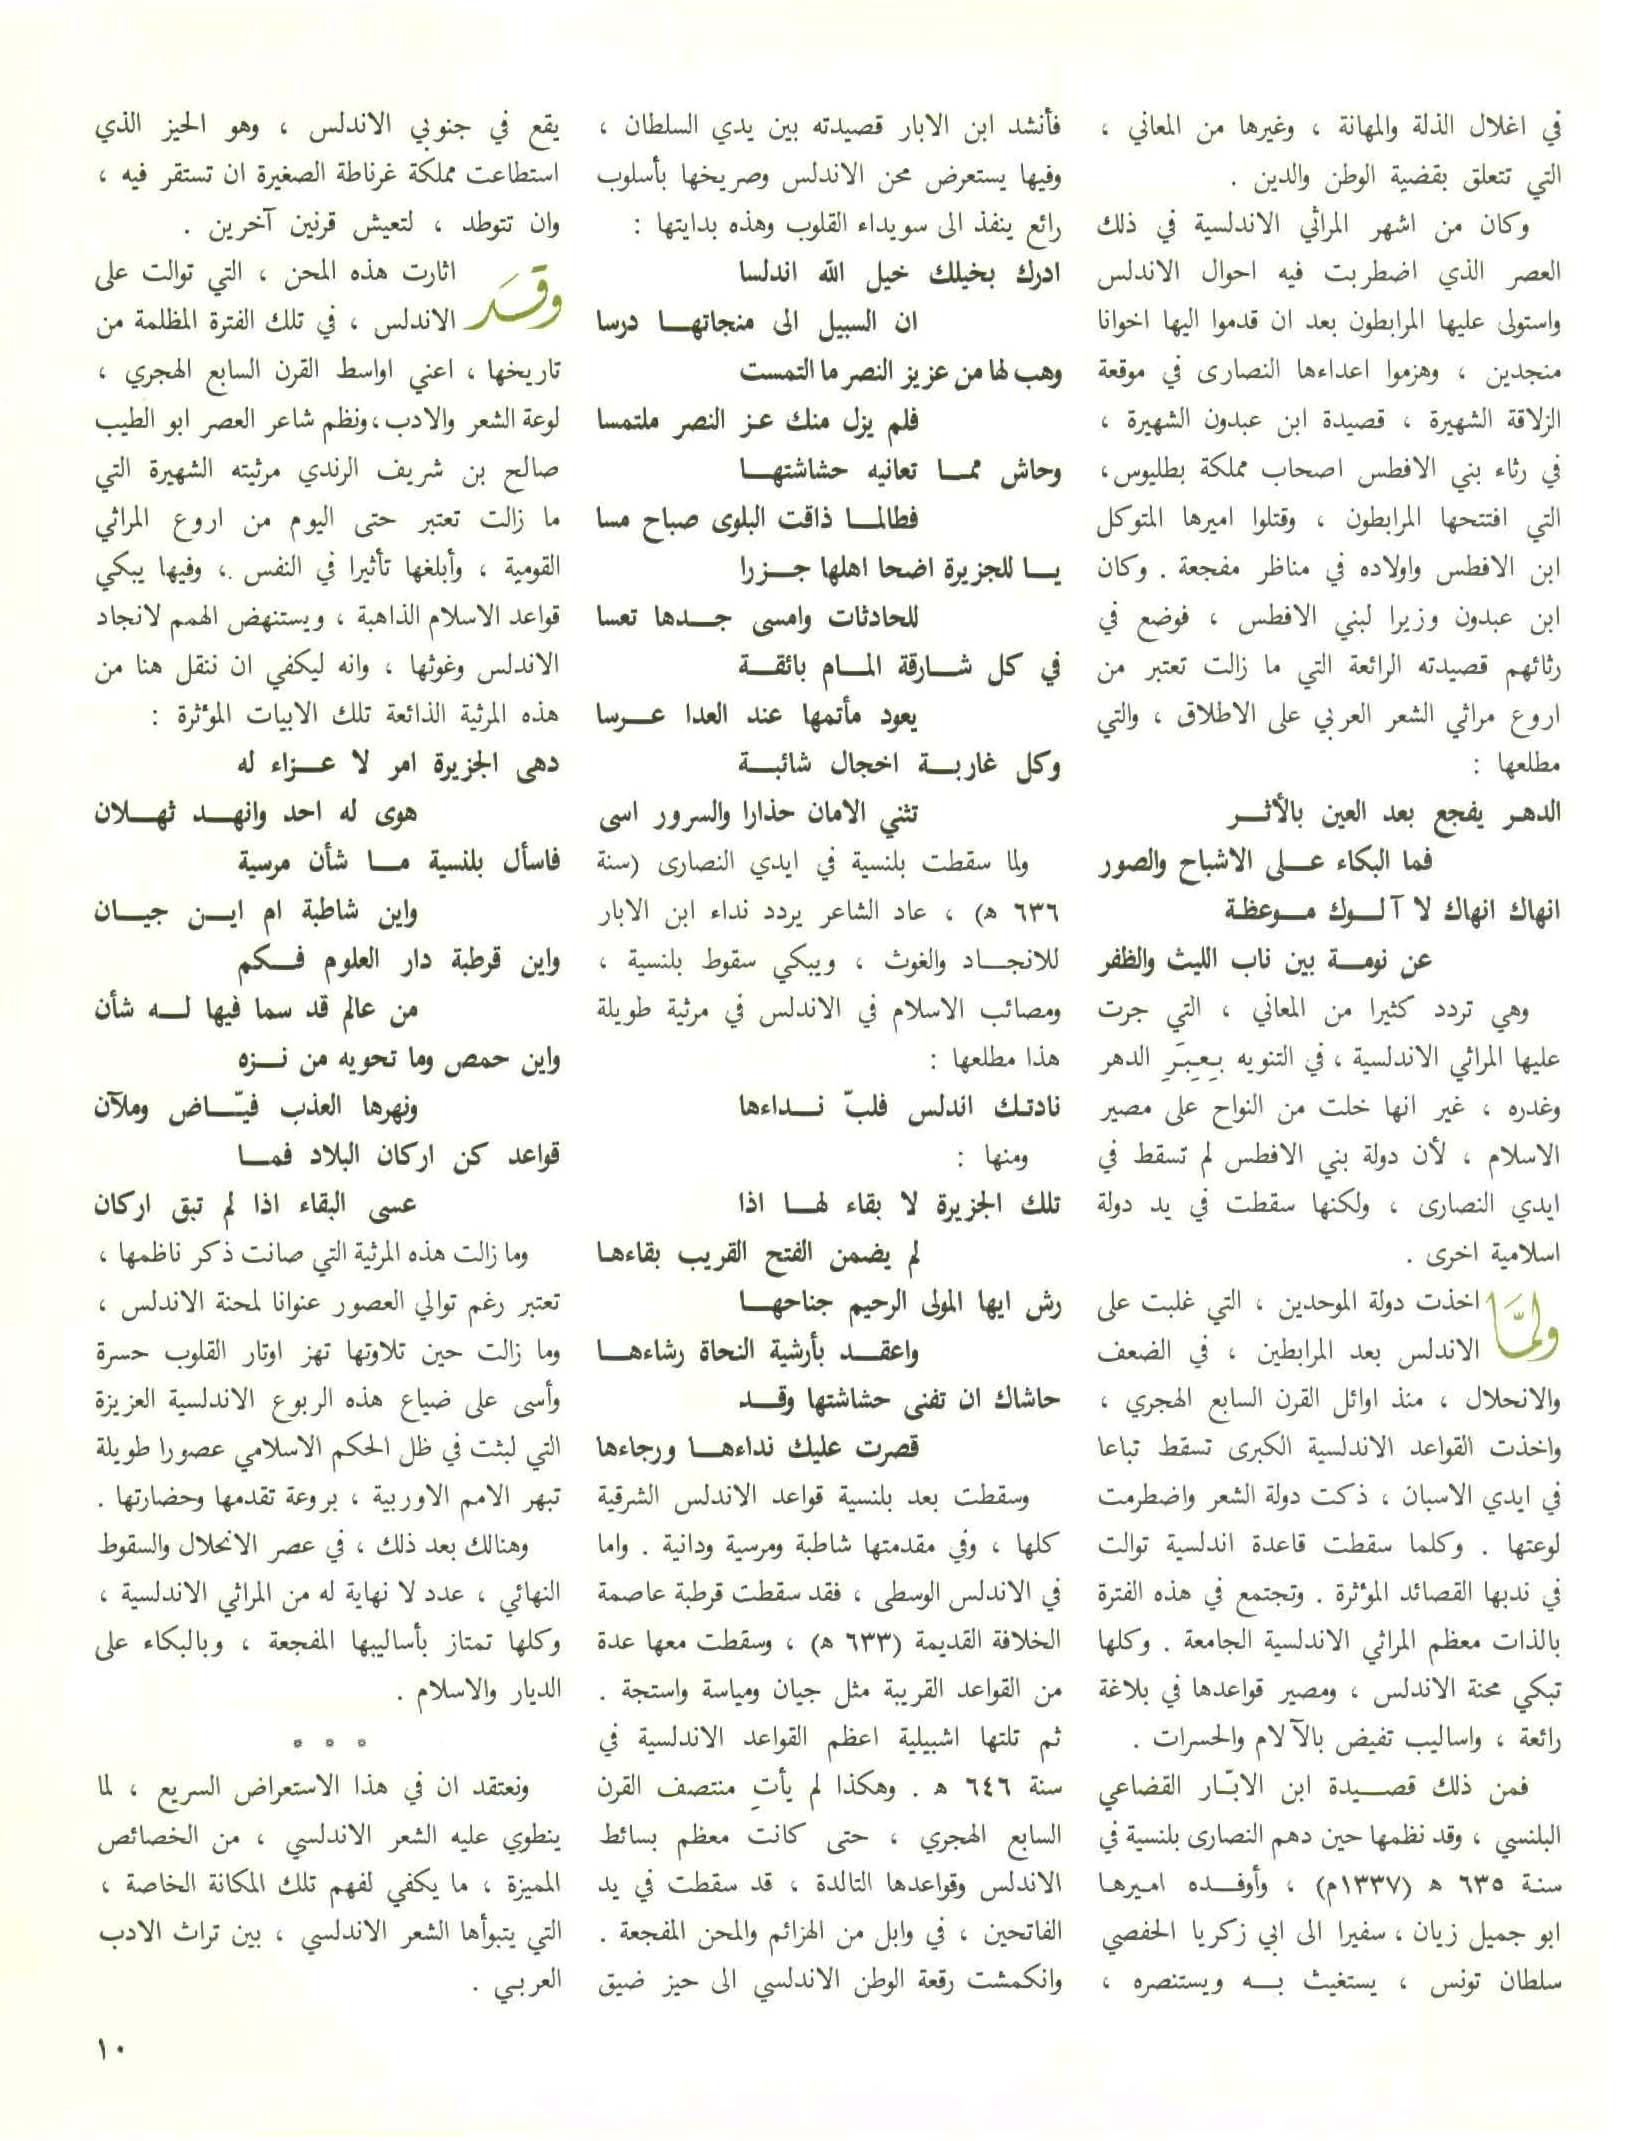 في اغلال الذلة والمهانة ، وغيرها من المعاني ،
التي تتعلق بقضية الوطن والدين .
وكان من اشهر المراثي الاندلسية في ذلك
العصر الذي اضطربت فيه احوال الاندلس
واستولى عليها المرابطون بعد ان قدموا اليها اخوانا
منجدين ، وهزموا اعداءها النصارى في موقعة
الزلاقة الشهيرة ، قصيدة ابن عبدون الشهيرة ،
في رثاء بني الافطس اصحاب مملكة بطليوس،
التي افتتحها المرابطون ، وقتلوا اميرها المتوكل
ابن الافطس واولاده في مناظر مفجعة . وكان
ابن عبدون وزيرا لبني الافطس ، فوضع في
رثائهم قصيدته الرائعة التي ما زالت تعتبر من
اروع مراثي الشعر العربي على الاطلاق ، والتي
مطلعها :
الدهر يفجع بعد العين بالأثر
فما البكاء على الاشباح والصور
انهاك انهاك لا آلوك موعظة
عن نومة بين ناب الليث والظفر
وهي تردد كثيرا من المعاني ، التي جرت
عليها المراثي الاندلسية ، في التنويه بِعِبَرِ الدهر
وغدره ، غير انها خلت من النواح على مصير
الاسلام ، لأن دولة بني الافطس لم تسقط في
ايدي النصارى ، ولكنها سقطت في يد دولة
اسلامية اخرى .
ولمّا اخذت دولة الموحدين ، التي غلبت على
الاندلس بعد المرابطين ، في الضعف
والانحلال ، منذ اوائل القرن السابع الهجري ،
واخذت القواعد الاندلسية الكبرى تسقط تباعا
في ايدي الاسبان ، ذكت دولة الشعر واضطرمت
لوعتها . وكلما سقطت قاعدة اندلسية توالت
في ندبها القصائد المؤثرة . وتجتمع في هذه الفترة
بالذات معظم المراثي الاندلسية الجامعة . وكلها
تبكي محنة الاندلس ، ومصير قواعدها في بلاغة
رائعة ، واساليب تفيض بالآلام والحسرات .
فمن ذلك قصيدة ابن الابّار القضاعي
البلنسي ، وقد نظمها حين دهم النصارى بلنسية في
سنة ٦٣٥ ه (١٣٣٧م) ، وأوفده اميرها
ابو جميل زيان ، سفيرا الى ابي زكريا الحفصي
سلطان تونس ، يستغيث به ويستنصره ،
فأنشد ابن الابار قصيدته بين يدي السلطان ،
وفيها يستعرض محن الاندلس وصريخها بأسلوب
رائع ينفذ الى سويداء القلوب وهذه بدايتها :
ادرك بخيلك خيل الله اندلسا
ان السبيل الى منجاتها درسا
وهب لها من عزيز النصر ما التمست
فلم يزل منك عز النصر ملتمسا
وحاش مما تعانيه حشاشتها
فطالما ذاقت البلوى صباح مسا
يا للجزيرة اضحا اهلها جزرا
للحادثات وامسى جدها تعسا
في كل شارقة المام بائقة
يعود مأتمها عند العدا عرسا
وكل غاربة اخجال شائبة
تثني الامان حذارا والسرور اسى
ولما سقطت بلنسية في ايدي النصارى (سنة
٦٣٦ ه) ، عاد الشاعر يردد نداء ابن الابار
للانجاد والغوث ، ويبكي سقوط بلنسية ،
ومصائب الاسلام في الاندلس في مرثية طويلة
هذا مطلعها :
نادتك اندلس فلبّ نداءها
ومنها :
تلك الجزيرة لا بقاء لها اذا
لم يضمن الفتح القريب بقاءها
رش ايها المولى الرحيم جناحها
واعقد بأرشية النحاة رشاءها
حاشاك ان تفنى حشاشتها وقد
قصرت عليك نداءها ورجاءها
وسقطت بعد بلنسية قواعد الاندلس الشرقية
كلها ، وفي مقدمتها شاطبة ومرسية ودانية . واما
في الاندلس الوسطى ، فقد سقطت قرطبة عاصمة
الخلافة القديمة (٦٣٣ ه) ، وسقطت معها عدة
من القواعد القريبة مثل جيان ومياسة واستجة .
ثم تلتها اشبيلية اعظم القواعد الاندلسية في
سنة ٦٤٦ ه . وهكذا لم يأتِ منتصف القرن
السابع الهجري ، حتى كانت معظم بسائط
الاندلس وقواعدها التالدة ، قد سقطت في يد
الفاتحين ، في وابل من الهزائم والمحن المفجعة .
وانكمشت رقعة الوطن الاندلسي الى حيز ضيق
يقع في جنوبي الاندلس ، وهو الحيز الذي
استطاعت مملكة غرناطة الصغيرة ان تستقر فيه ،
وان تتوطد ، لتعيش قرنين آخرين .
وقَد اثارت هذه المحن ، التي توالت على
الاندلس ، في تلك الفترة المظلمة من
تاريخها ، اعني اواسط القرن السابع الهجري ،
لوعة الشعر والادب، ونظم شاعر العصر ابو الطيب
صالح بن شريف الرندي مرثيته الشهيرة التي
ما زالت تعتبر حتى اليوم من اروع المراثي
القومية ، وأبلغها تأثيرا في النفس ، وفيها يبكي
قواعد الاسلام الذاهبة ، ويستنهض الهمم لانجاد
الاندلس وغوثها ، وانه ليكفي ان ننقل هنا من
هذه المرثية الذائعة تلك الابيات المؤثرة :
دهى الجزيرة امر لا عزاء له
هوى له احد وانهد ثهلان
فاسأل بلنسية ما شأن مرسية
واين شاطبة ام اين جيان
واين قرطبة دار العلوم فكم
من عالم قد سما فيها له شأن
واين حمص وما تحويه من نزه
ونهرها العذب فيّاض وملآن
قواعد كن اركان البلاد فما
عسى البقاء اذا لم تبق اركان
وما زالت هذه المرثية التي صانت ذكر ناظمها ،
تعتبر رغم توالي العصور عنوانا لمحنة الاندلس ،
وما زالت حين تلاوتها تهز اوتار القلوب حسرة
وأسى على ضياع هذه الربوع الاندلسية العزيزة
التي لبثت في ظل الحكم الاسلامي عصورا طويلة
تبهر الامم الاوربية ، بروعة تقدمها وحضارتها .
وهنالك بعد ذلك ، في عصر الانحلال والسقوط
النهائي ، عدد لا نهاية له من المراثي الاندلسية ،
وكلها تمتاز بأساليبها المفجعة ، وبالبكاء على
الديار والاسلام .
* * *
ونعتقد ان في هذا الاستعراض السريع ، لما
ينطوي عليه الشعر الاندلسي ، من الخصائص
المميزة ، ما يكفي لفهم تلك المكانة الخاصة ،
التي يتبوأها الشعر الاندلسي ، بين تراث الادب
العربي .
١٠